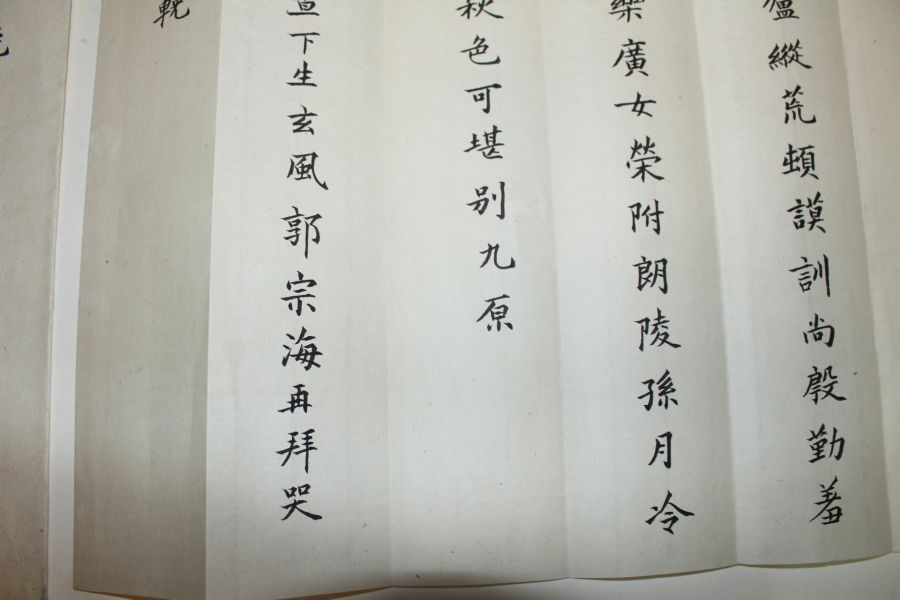 縱荒頓謨訓尚殷勤羞
樂廣女榮附朗陵孫月冷
秋色可堪別九原
下生玄風郭宗海再拜哭
輓